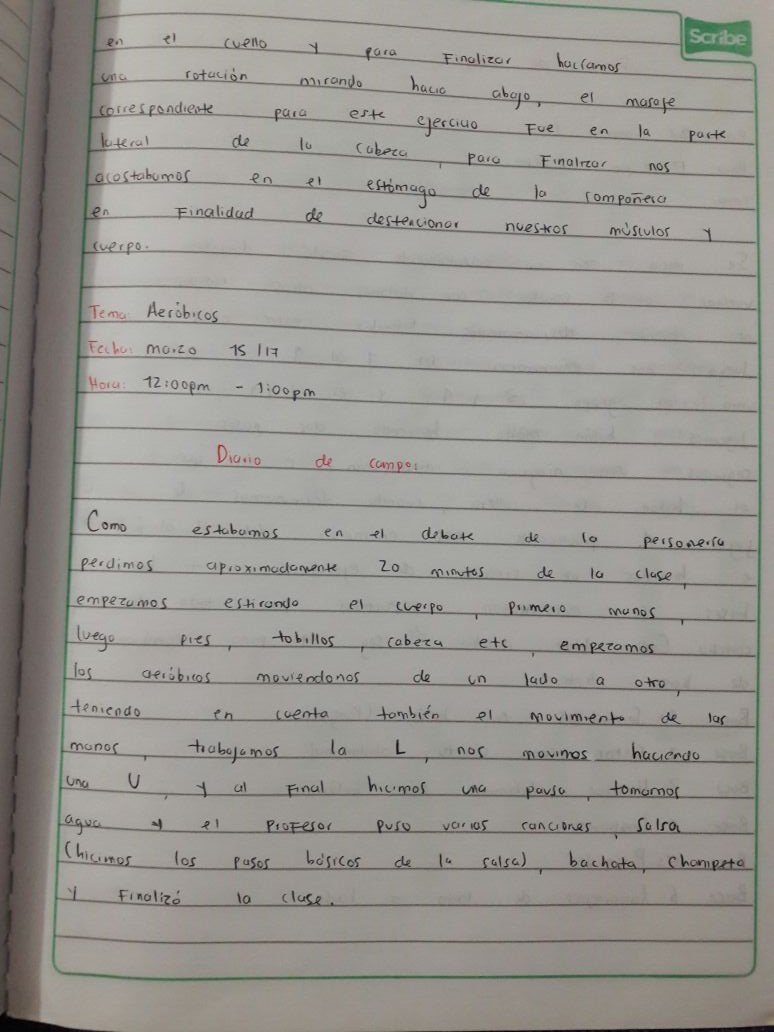 Scribe
en el cuello y para Finalizar hacíamos
una rotación mirando hacia abajo, el masaje
correspondiente para este ejercicio Fue en la parte
lateral de la cabeza, para Finalizar nos
acostabamos en el estómago de la compañera
en Finalidad de destencionar nuestros músculos y
cuerpo.
Tema: Aeróbicos
Fecha: marzo 15/17
Hora: 12:00pm - 1:00pm
Diario de campo:
Como estabamos en el debate de la personería
perdimos aproximadamente 20 minutos de la clase,
empezamos estirando el cuerpo, primero manos,
luego pies, tobillos, cabeza etc, empezamos
los aeróbicos moviendonos de un lado a otro,
teniendo en cuenta también el movimiento de las
manos, trabajamos la L, nos movimos haciendo
una U, y al Final hicimos una pausa, tomamos
agua y el Profesor puso varias canciones, Salsa
(hicimos los pasos básicos de la salsa), bachata, champeta
y Finalizó la clase.